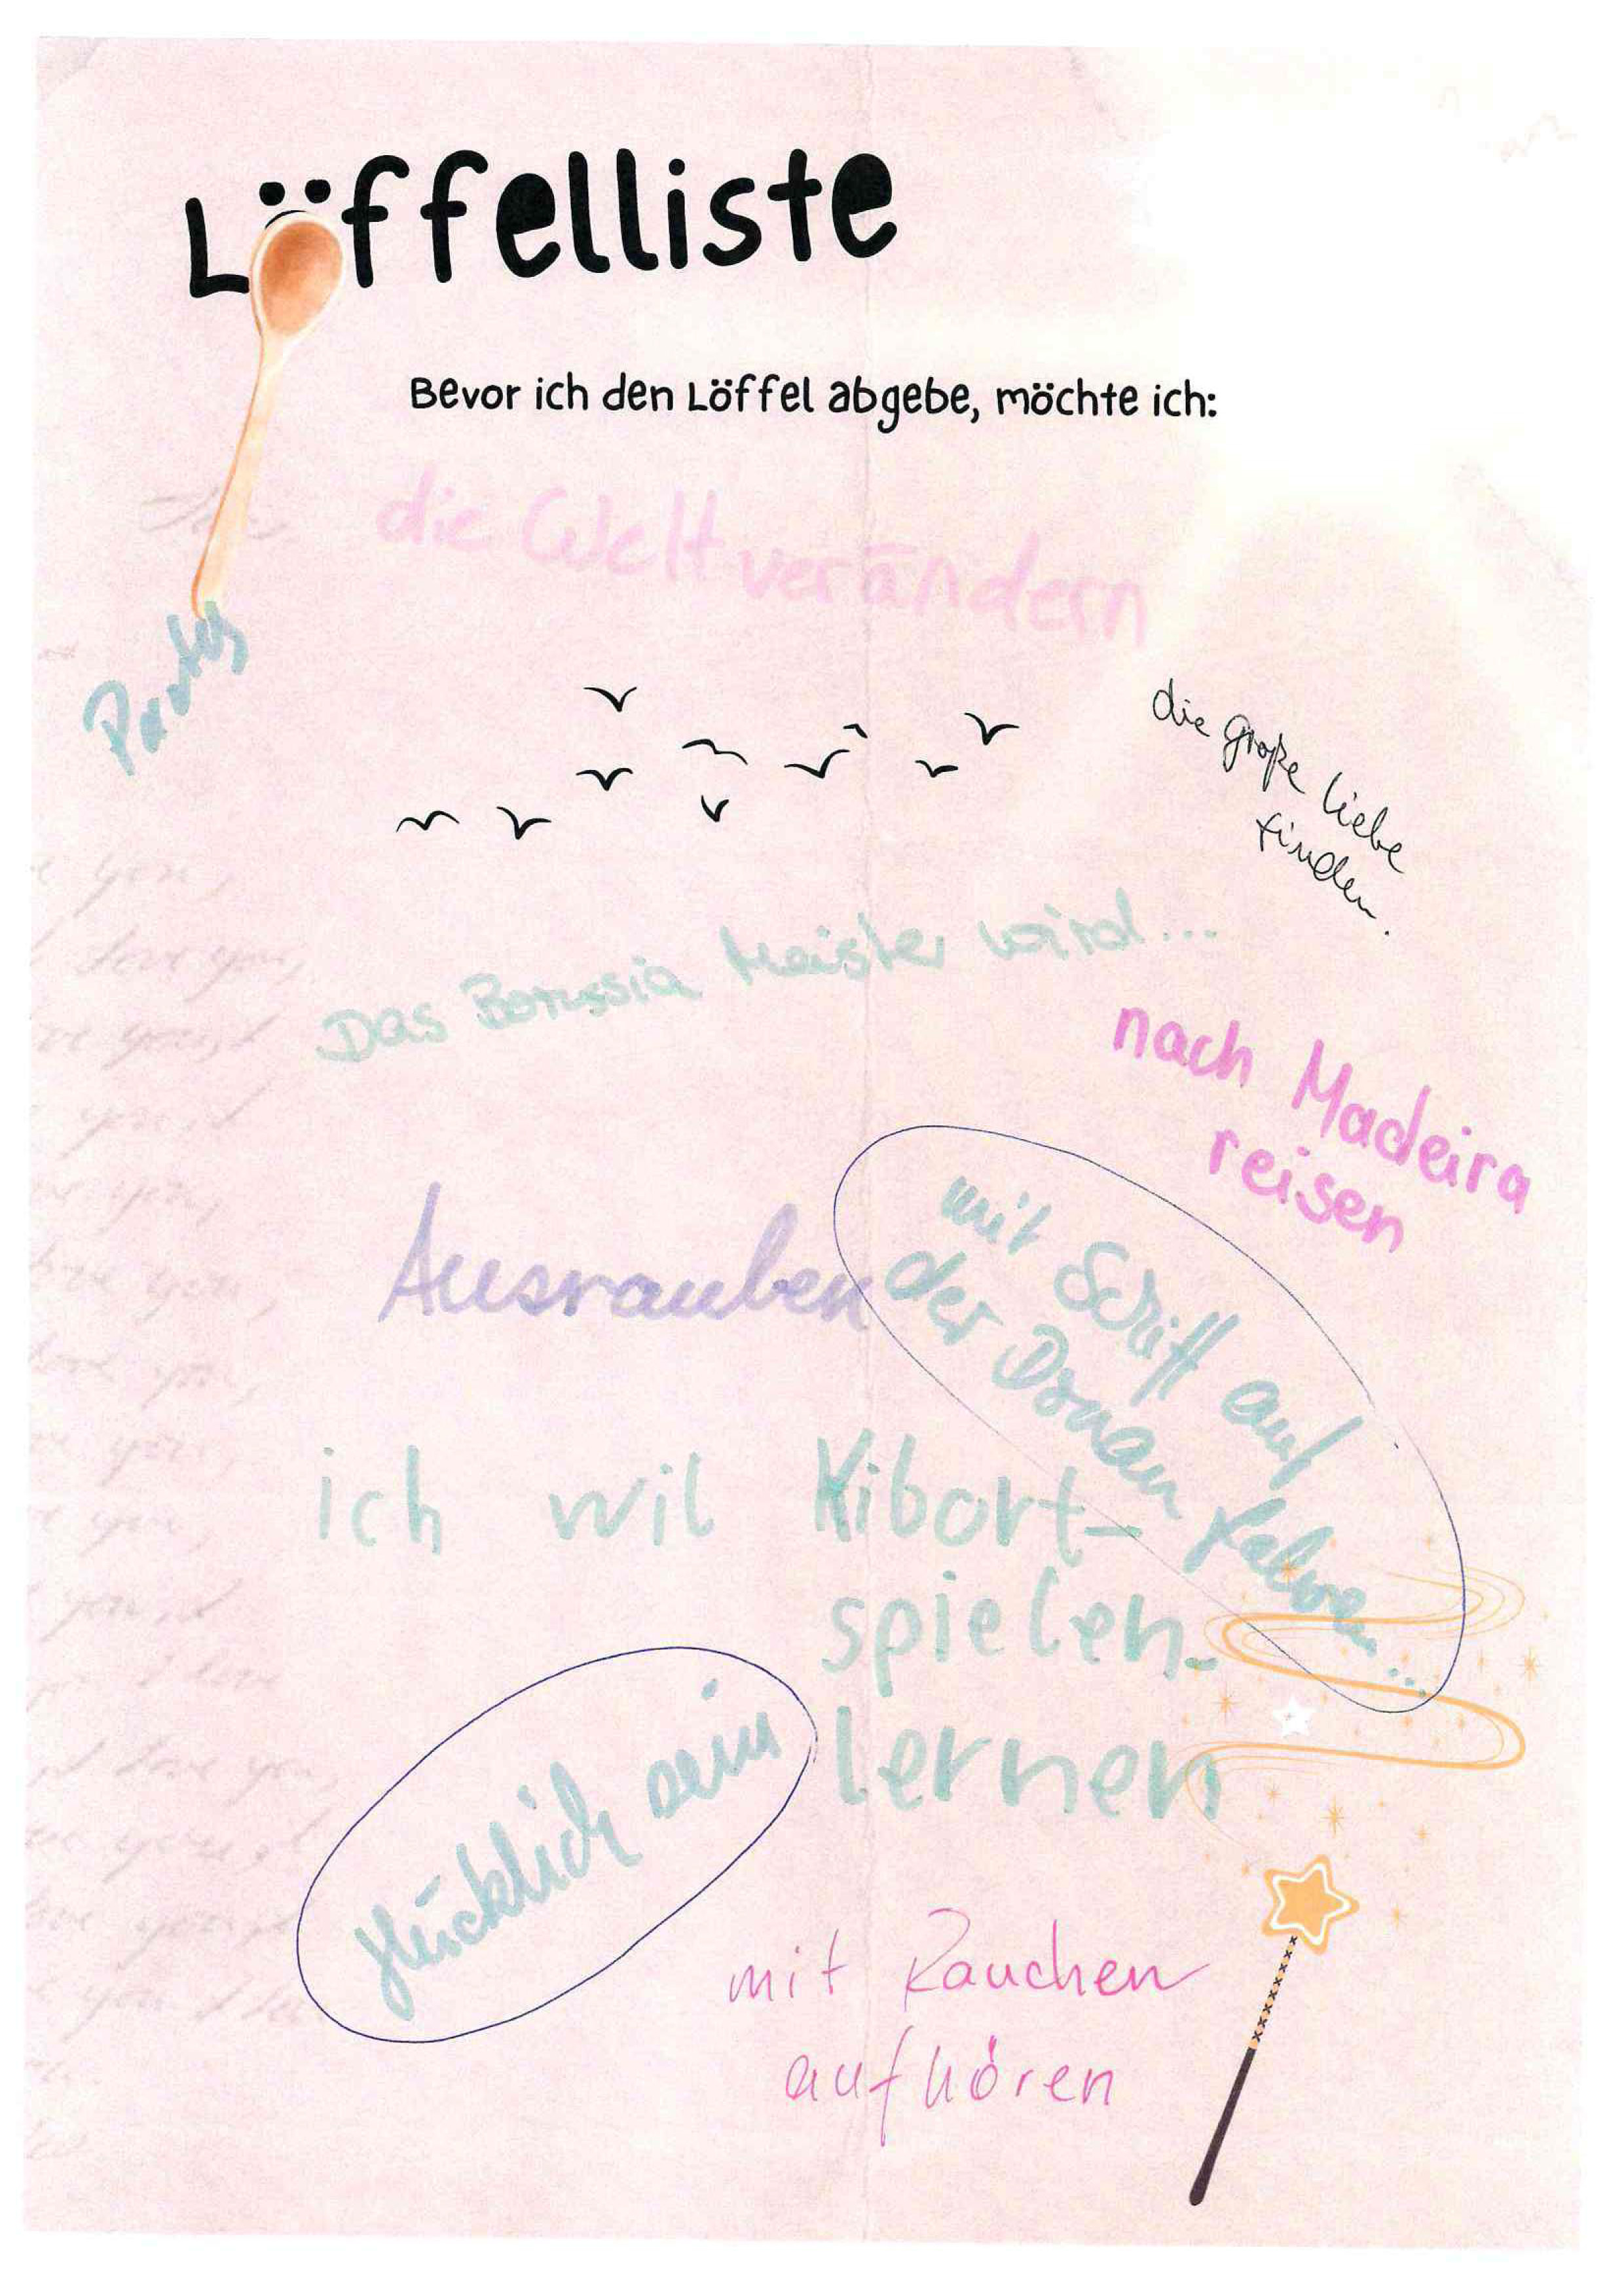 Löffelliste
Bevor ich den Löffel abgebe, möchte ich:
die Welt verändern
Party
die große Liebe
finden.
Das Borussia Meister wird...
nach Madeira
reisen
Ausrauben
mit Schiff auf
der Donau fahren...
ich wil Kibort-
spielen-
lernen
glücklich sein
mit Rauchen
aufhören